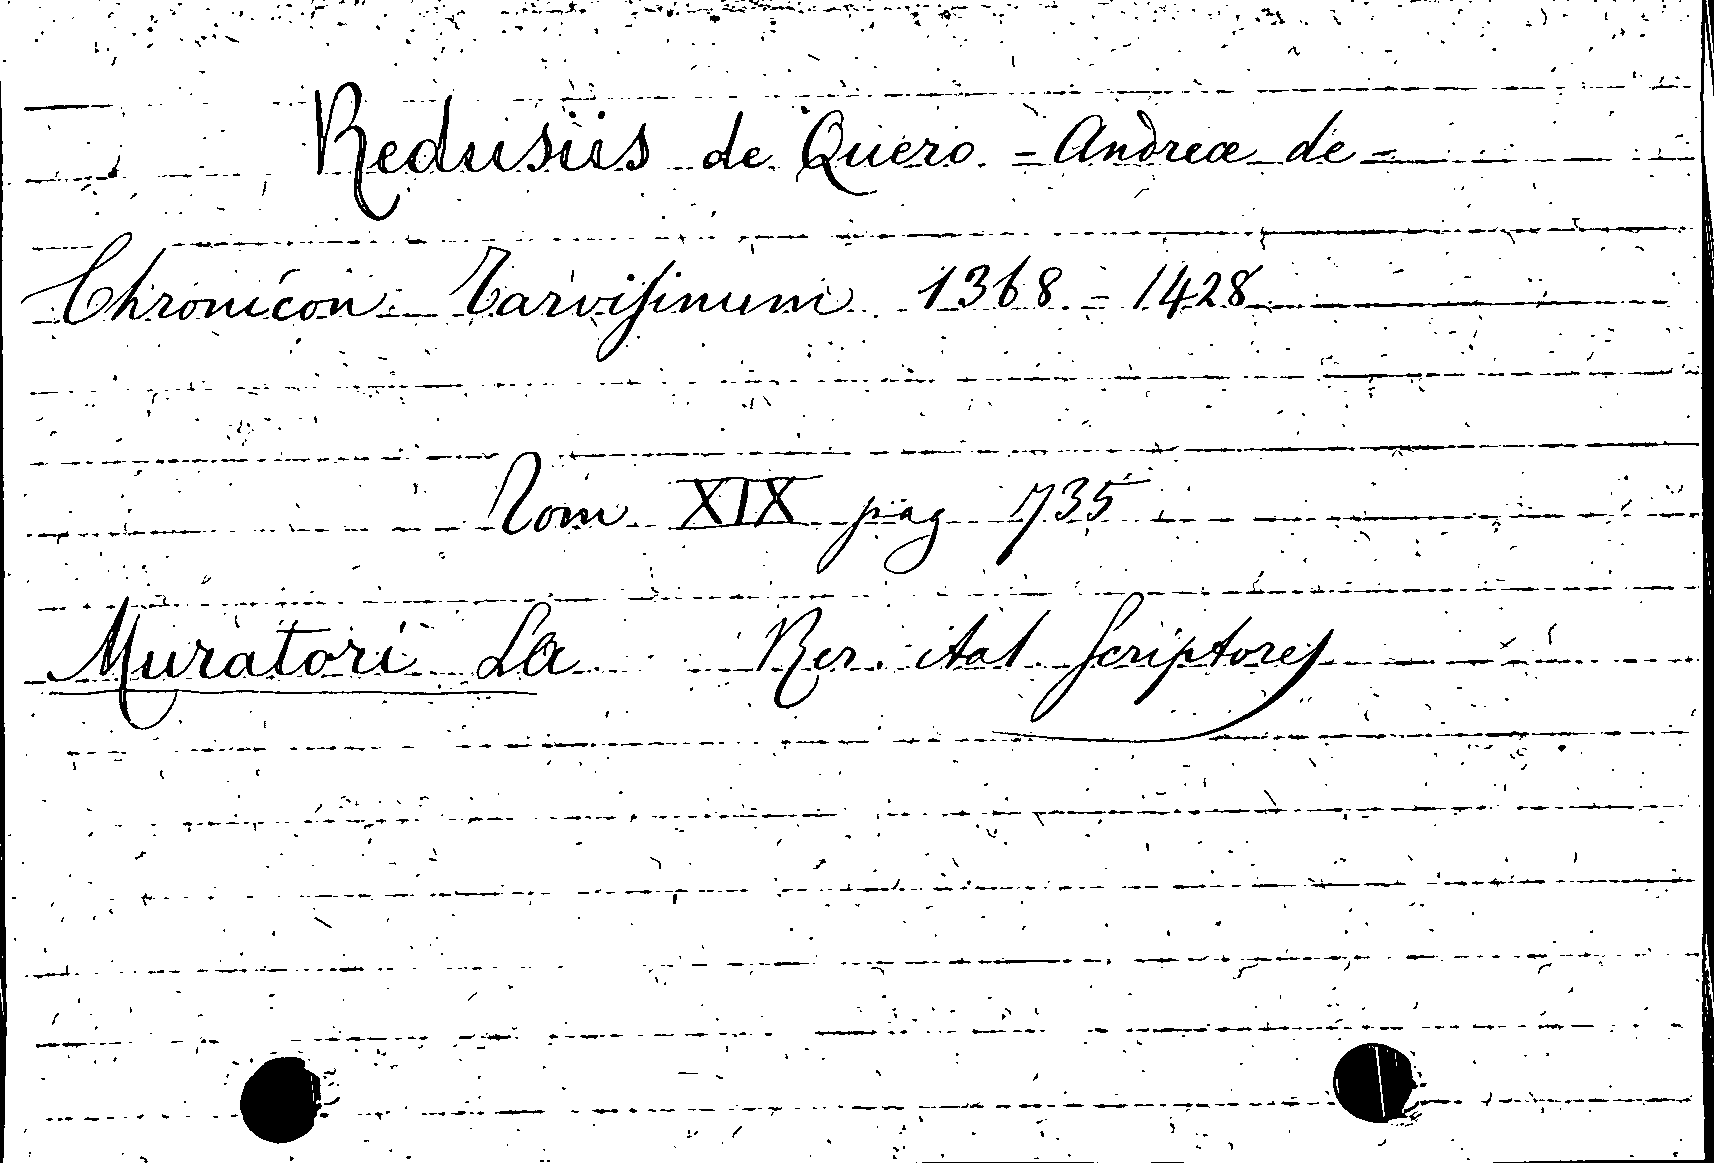 Redusiis de Quero. - Andreæ de -
Chronicon Tarvisinum 1368 - 1428
Tom XIX pag 735
Muratori LA Rer. ital Scriptores